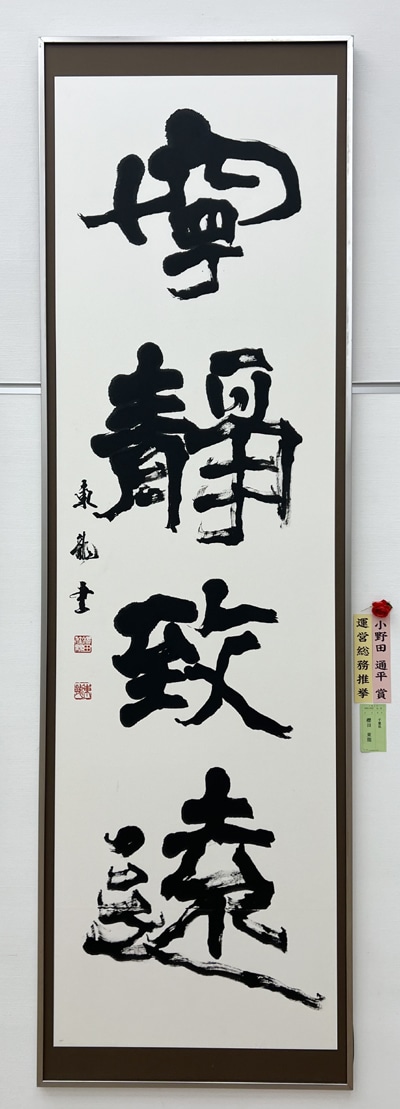 寧靜致遠
東龍書
小野田 通平 賞
運営総務推挙